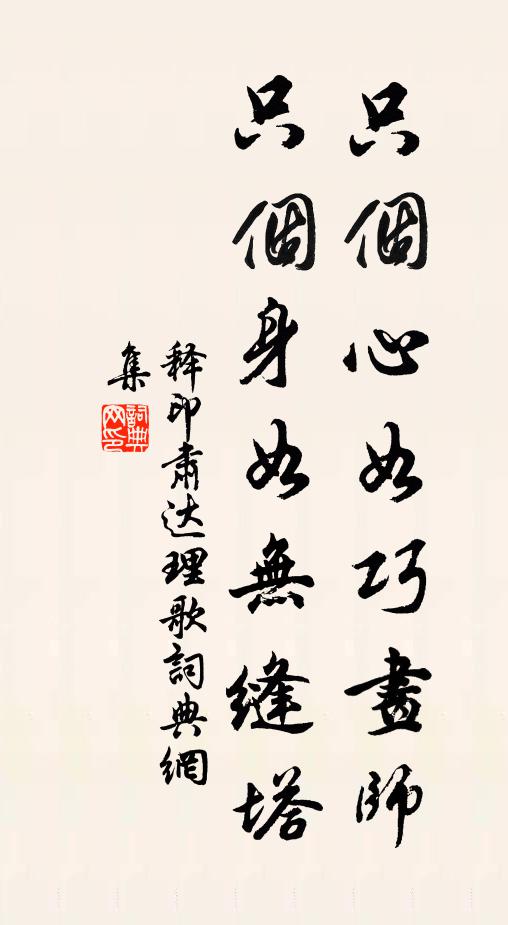 只個心如巧畫師
只個身如無縫塔
释印肃达理歌詞典網
集
詞典網印